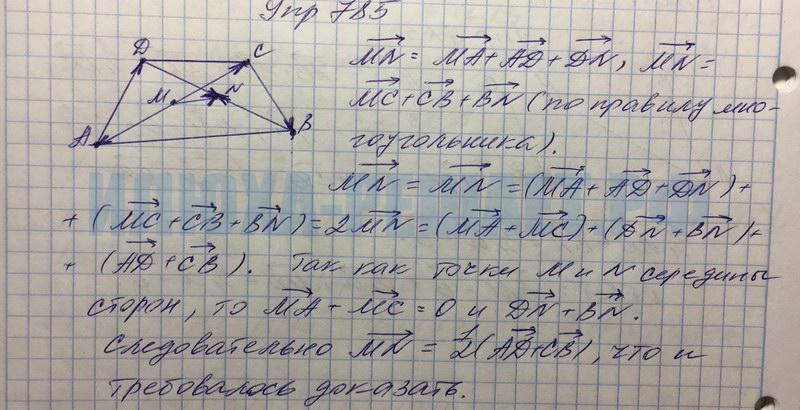 Упр 785
D C
M N
A B
MN = MA + AD + DN, MN =
MC + CB + BN (по правилу мно-
гоугольника).
MN = MN = (MA + AD + DN) +
+ (MC + CB + BN) = 2MN = (MA + MC) + (DN + BN) +
+ (AD + CB). Так как точки M и N середины
сторон, то MA + MC = 0 и DN + BN.
Следовательно MN = 1/2(AD+CB), что и
требовалось доказать.